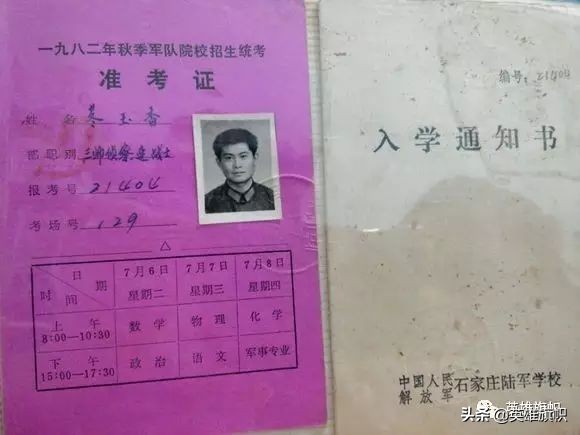 一九八二年秋季军队院校招生统考
准考证
姓名 秦玉香
部职别 三师侦察连战士
报考号 21404
考场号 129
日期
时间
7月6日 星期二
7月7日 星期三
7月8日 星期四
上午 8:00—10:30 数学 物理 化学
下午 15:00—17:30 政治 语文 军事专业
编号: 21404
入学通知书
中国人民解放军 石家庄陆军学校
英雄旗帜
头条 @英雄旗帜